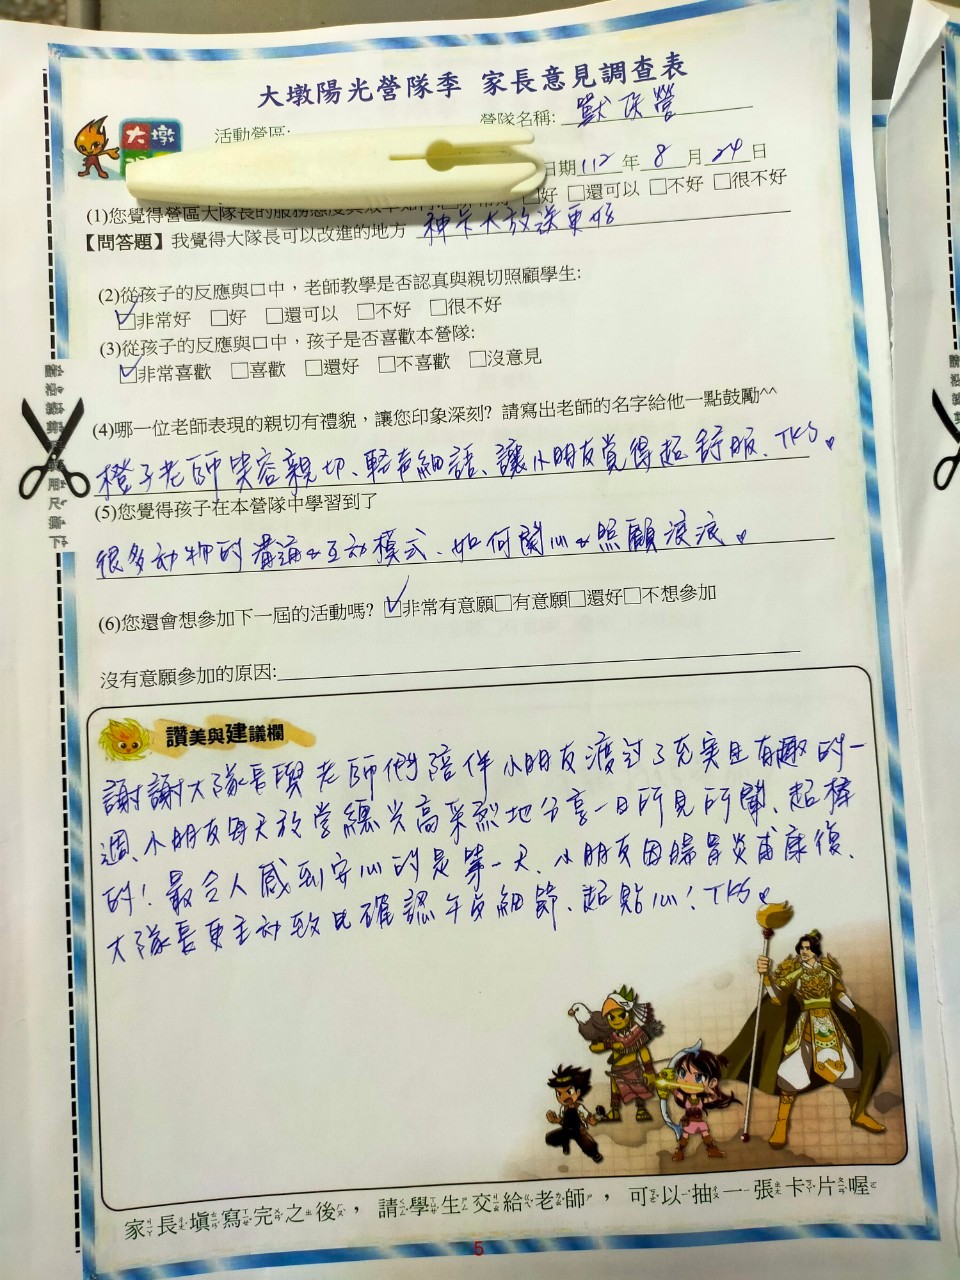 大墩陽光營隊季 家長意見調查表
大墩
活動營區:
營隊名稱: 獸医營
日期112年8月24日
(1)您覺得營區大隊長的服務態度與效率如何 好 □還可以 □不好 □很不好
【問答題】我覺得大隊長可以改進的地方 神卡大放送更好
(2)從孩子的反應與口中，老師教學是否認真與親切照顧學生:
☑非常好 □好 □還可以 □不好 □很不好
(3)從孩子的反應與口中，孩子是否喜歡本營隊:
☑非常喜歡 □喜歡 □還好 □不喜歡 □沒意見
(4)哪一位老師表現的親切有禮貌，讓您印象深刻? 請寫出老師的名字給他一點鼓勵^^
橙子老師笑容親切、輕声細語、讓小朋友覚得超舒服、TKS♥
(5)您覺得孩子在本營隊中學習到了
很多动物的溝通&互动模式、如何関心&照顧浪浪♥
(6)您還會想參加下一屆的活動嗎? ☑非常有意願□有意願□還好□不想參加
沒有意願參加的原因:
讚美與建議欄
謝謝大隊長與老師們陪伴小朋友渡过了充実且有趣的一
週、小朋友每天放学總兴高采烈地分享一日所見所聞、超棒
的！最令人感到安心的是第一天、小朋友因腸胃炎甫康復、
大隊長更主动致电確認午安細節、超貼心！TKS♥
家長填寫完之後，請學生交給老師，可以抽一張卡片喔
5